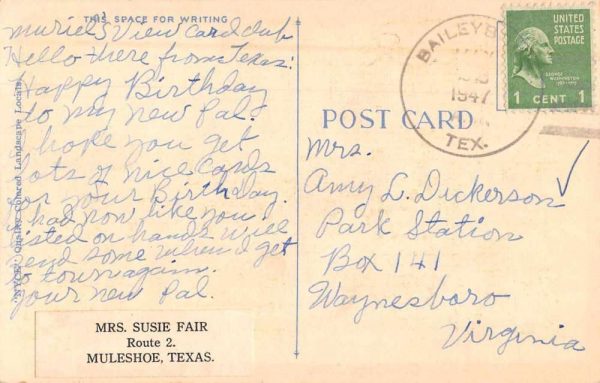 THIS SPACE FOR WRITING
Muriel's View Card club
Hello there from Texas.
Happy Birthday
to my new Pal.
I hope you get
lots of nice Cards
for your Birthday.
I had now like you
listed on hands will
send some when I get
to town again.
your new Pal.
MRS. SUSIE FAIR
Route 2.
MULESHOE, TEXAS.
Quality Colored Landscape Locals
POST CARD
BAILEYB
1947
TEX.
UNITED
STATES
POSTAGE
GEORGE
WASHINGTON
1 CENT 1
Mrs.
Amy L. Dickerson
Park Station
Box 141
Waynesboro
Virginia